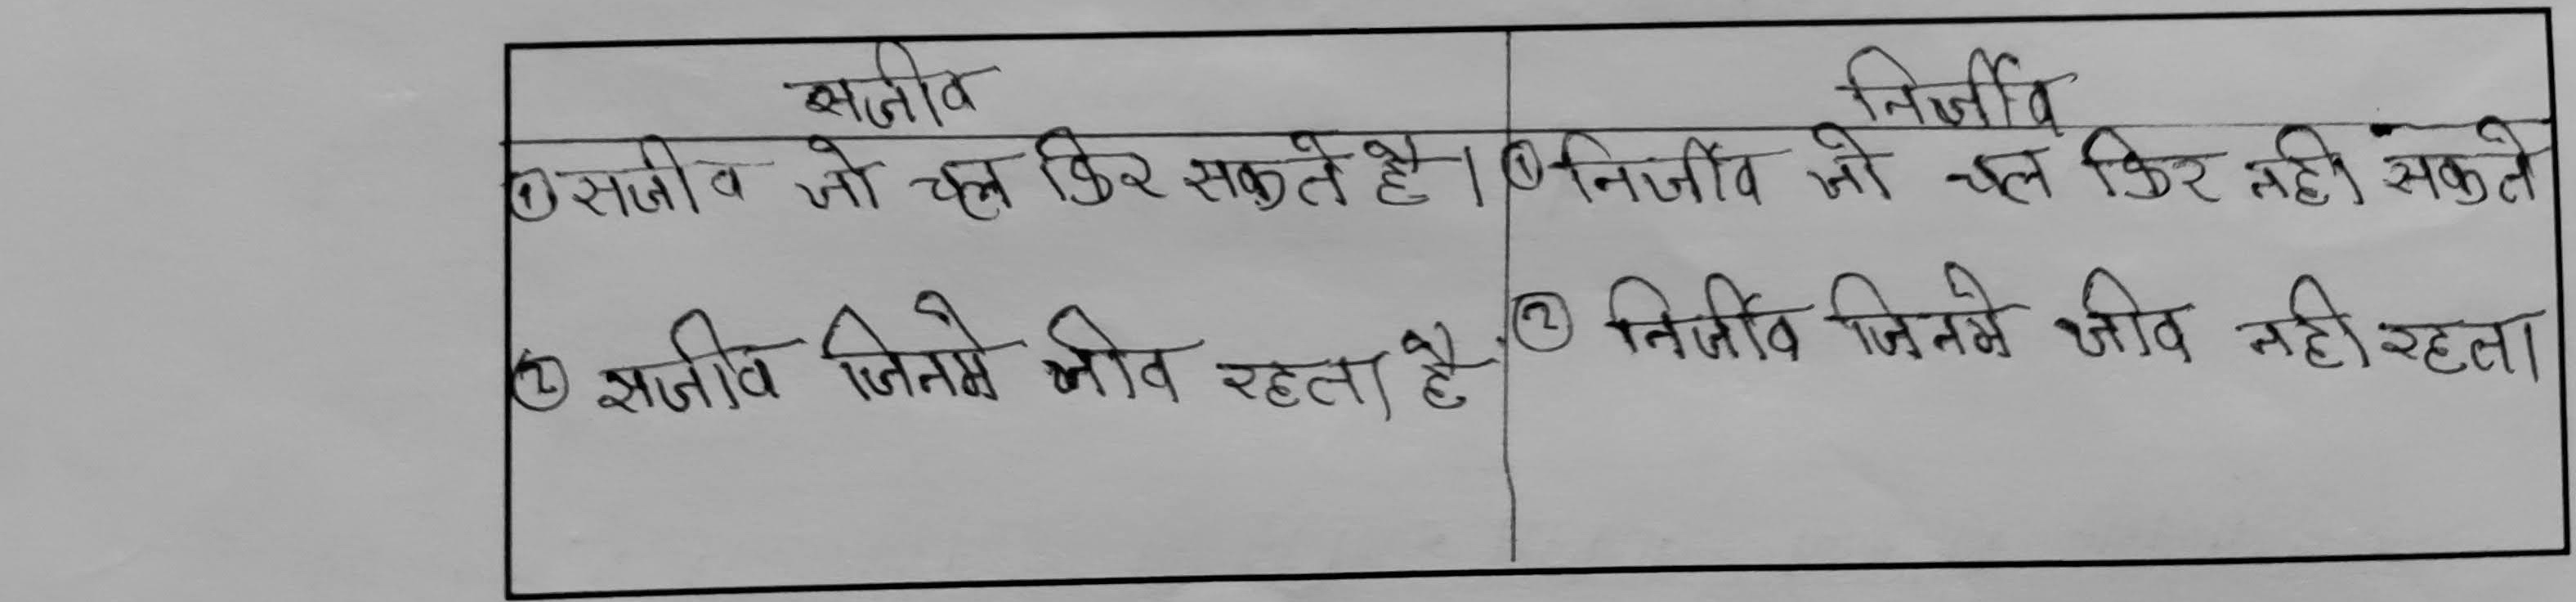 सजीव
निर्जीव
① सजीव जो चल फिर सकते है।
① निर्जीव जो चल फिर नही सकते
② सजीव जिनमे जीव रहता है
② निर्जीव जिनमे जीव नही रहता